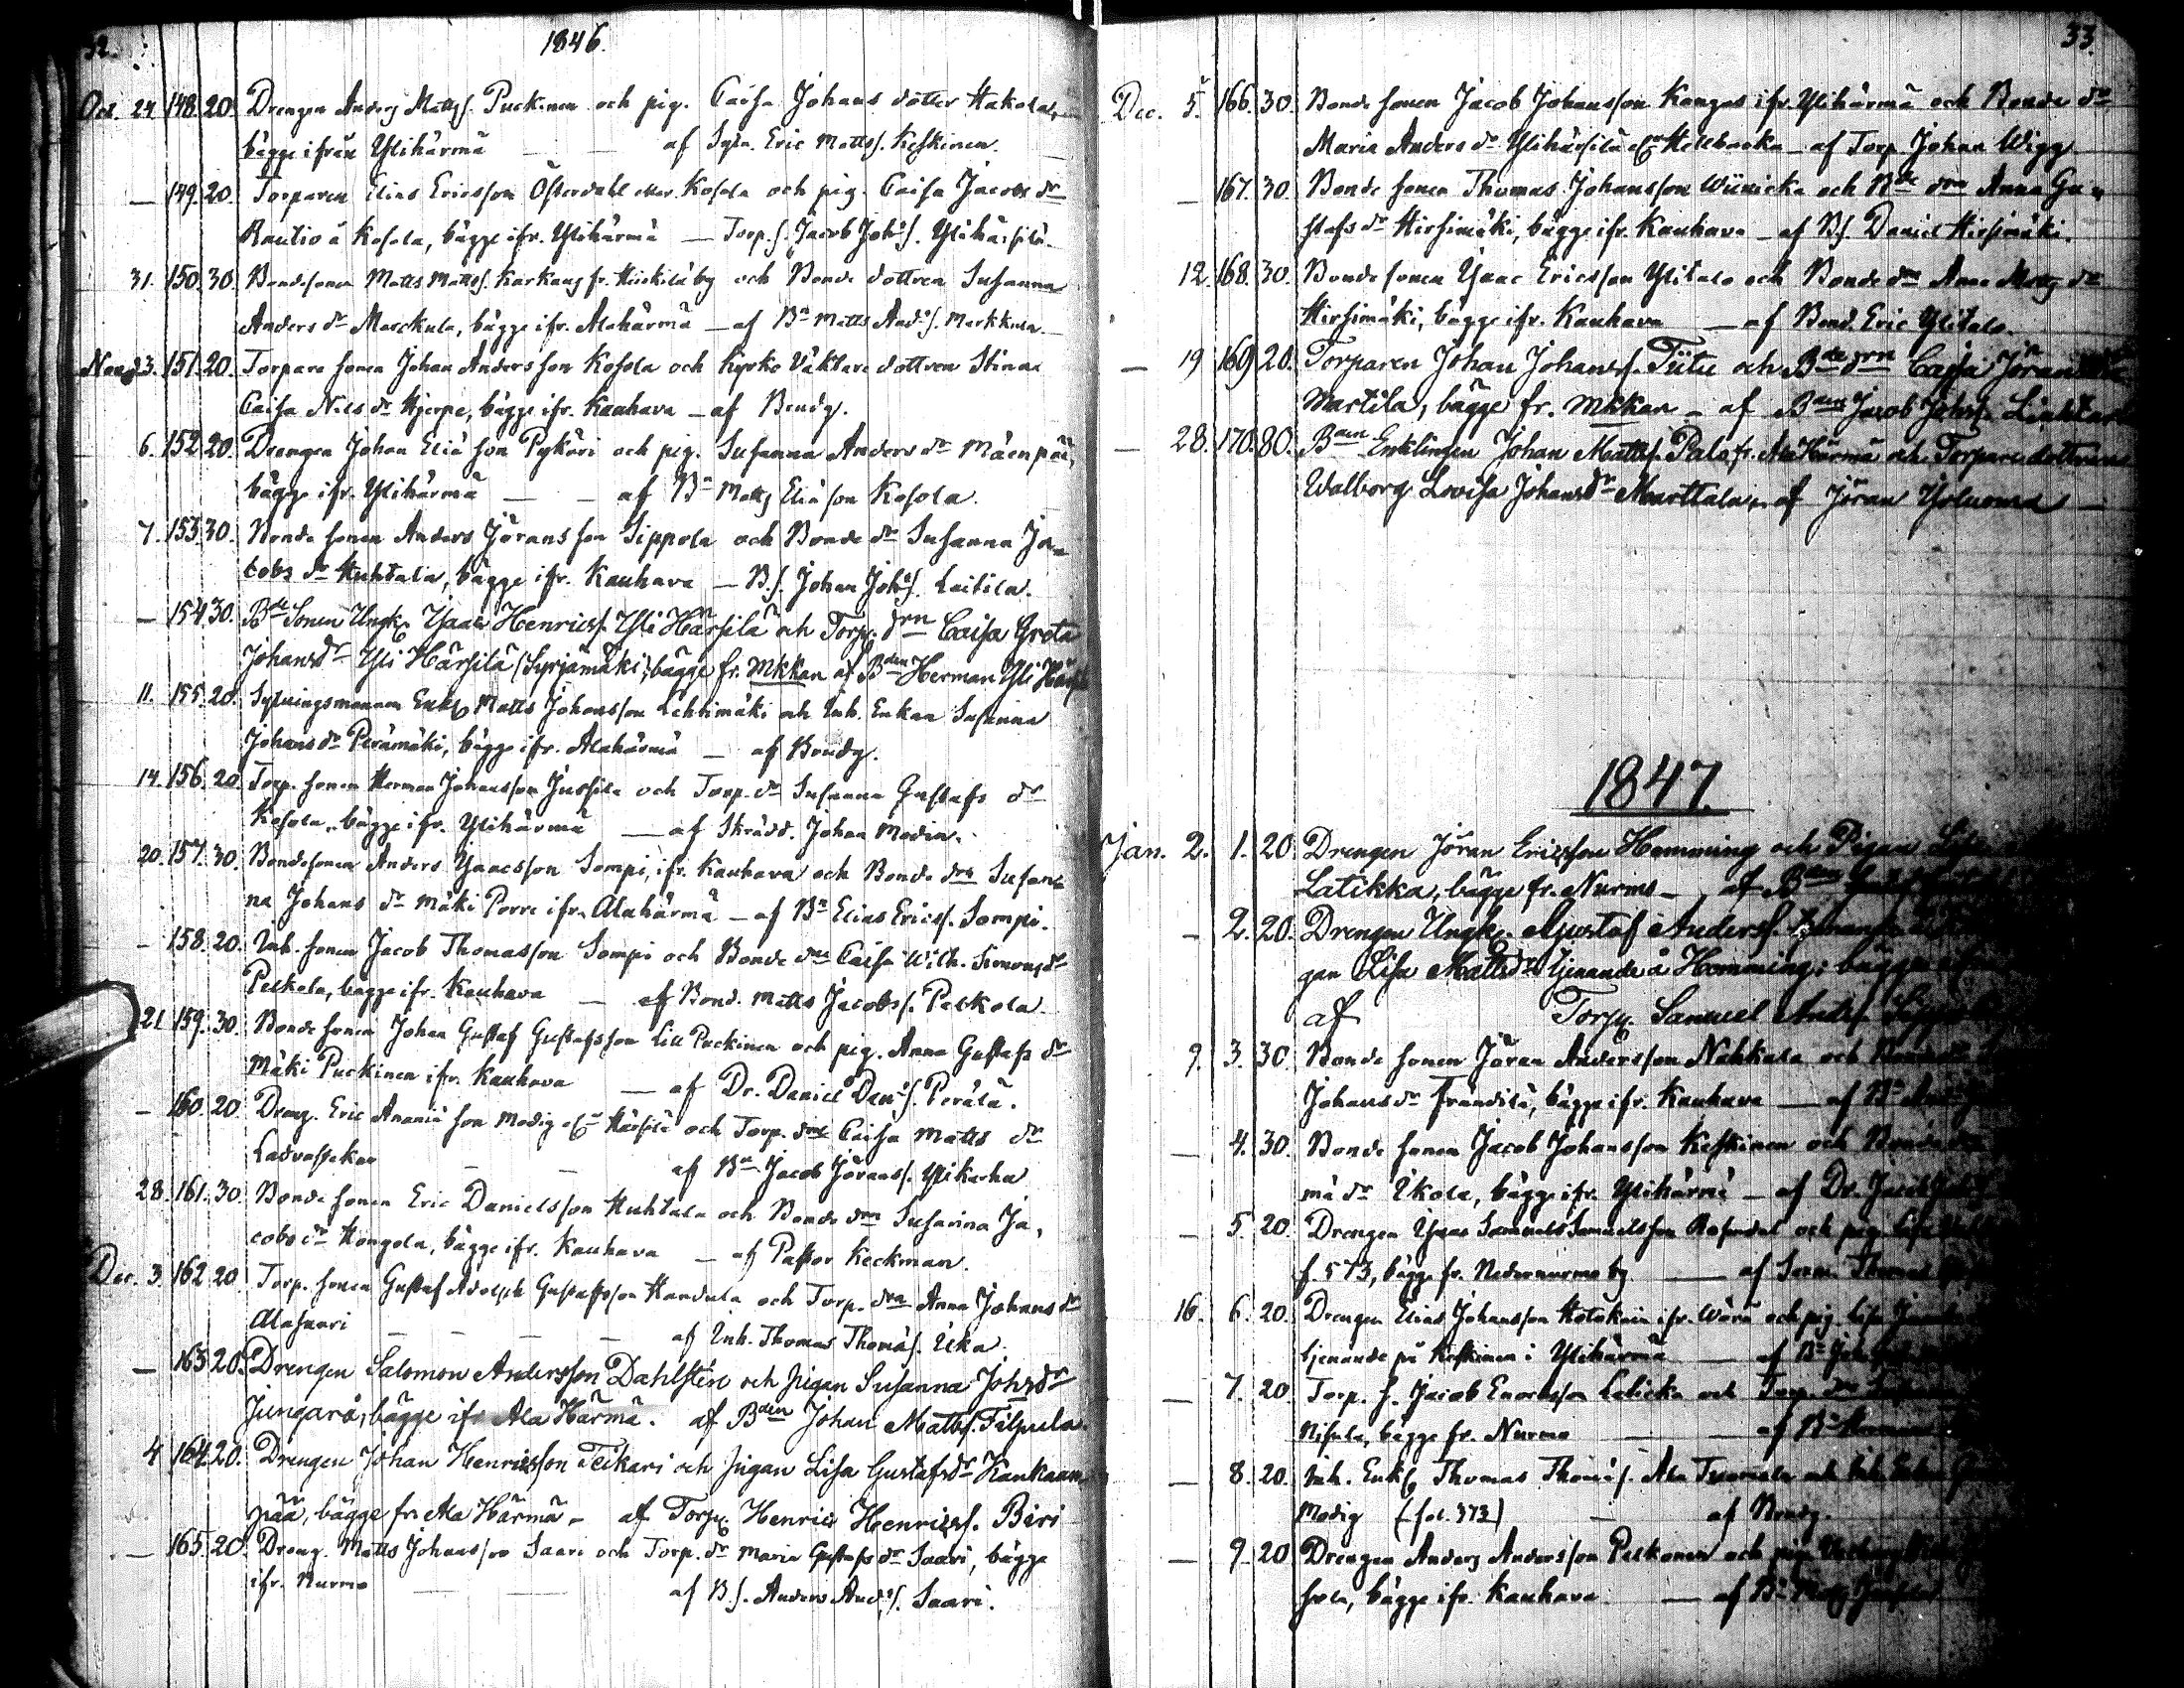 32.
1846.
Oct. 24. 148. 20. Drengen Anders Mattss. Puckinen och pig. Caisa Johans dotter Hakola,
bägge ifrån Ylihärmä — — af Sytn. Eric Mattss. Keskinen.
— 149. 20. Torparen Elias Ericsson Österdahl eller Kosola och pig. Caisa Jacobs dr
Rautio å Kosola, bägge ifr. Ylihärmä — Torp. s. Jacob Johs s. Ylihärsilä.
31. 150. 30. Bondesonen Matts Mattss. Karkaus fr. Huskila by och Bonde dottren Susanna
Anders dr Marckula, bägge ifr. Alahärmä — af Bn Matts And:s. Markkula.
Nov. 3. 151. 20. Torpare sonen Johan Andersson Kosola och Kyrko Väktare dottren Stina
Caisa Nils dr Hjerpe, bägge ifr. Kauhava — af Brudg.
6. 152. 20. Drengen Johan Elia son Pykäri och pig. Susanna Anders dr Mäenpää,
bägge ifr. Ylihärmä — — af Bn Matts Elia son Kosola.
7. 153. 30. Bonde sonen Anders Jöransson Sippola och Bonde dr Susanna Ja-
cobs dr Huhtala, bägge ifr. Kauhava — B. s. Johan Joh:s. Laitila.
— 154. 30. Bde Sonen Ungk. Isaac Henricss. Yli Härsilä och Torp. drn Caisa Greta
Johansdr Yli Härsilä (Syrjämäki), bägge fr. Mkkan af Bden Herman Yli Härsilä
11. 155. 20. Sytningsmannen Enkl. Matts Johansson Lehtimäki och Inh. Enkan Susanna
Johans dr Perämäki, bägge ifr. Alahärmä — af Brudg.
14. 156. 20. Torp. sonen Herman Johansson Jussila och Torp. dr Susanna Gustafs dr
Kosola, bägge ifr. Ylihärmä — af Skrädd. Johan Modin.
20. 157. 30. Bondesonen Anders Isacsson Sompi, ifr. Kauhava och Bonde drn Susan-
na Johans dr Mäki Porre ifr. Alahärmä — af Bn Elias Ericss. Sompi.
— 158. 20. Inh. sonen Jacob Thomasson Sompi och Bonde drn Caisa Wilh. Simons dr
Pelkola, bägge ifr. Kauhava — af Bond. Matts Jacobss. Pelkola.
21. 159. 30. Bonde sonen Johan Gustaf Gustafsson Lill Puckinen och pig. Anna Gustafs dr
Mäki Puckinen ifr. Kauhava — af Dr. Daniel Dan:s. Perälä.
— 160. 20. Dreng. Eric Anania son Modig Härsilä och Torp. drn Caisa Matts dr
Ladvassekar — — af Bn Jacob Jöranss. Ylikarhu
28. 161. 30. Bonde sonen Eric Danielsson Huhtala och Bonde drn Susanna Ja-
cobs dr Kongola, bägge ifr. Kauhava — af Pastor Keckman.
Dec. 3. 162. 20. Torp. sonen Gustaf Adolph Gustafsson Handula och Torp. drn Anna Johans dr
Alasaari — — — — af Inh. Thomas Thomas s. Eka.
— 163. 20. Drengen Salomon Andersson Dahlsten och Pigan Susanna Johsdr
Jungarå, bägge ifr. Ala Härmä. af Bden Johan Mattss. Filpula.
4. 164. 20. Drengen Johan Henricsson Teikari och Pigan Lisa Gustafsdr Kankaan-
pää, bägge fr. Ala Härmä. — af Torp. Henric Henricss. Biri
— 165. 20. Dreng. Matts Johansson Saari och Torp. dr Maria Gustafs dr Saari, bägge
ifr. Nurmo — — af B. s. Anders And:s. Saari.
33.
Dec. 5. 166. 30. Bonde sonen Jacob Johansson Kangas ifr. Ylihärmä och Bonde dr
Maria Anders dr Ylihärsilä Hellbacka — af Torp. Johan Wigg
— 167. 30. Bonde sonen Thomas Johansson Wiinicka och Bde drn Anna Gu-
stafs dr Hirsimäki, bägge ifr. Kauhava — af B. s. Daniel Hirsimäki.
12. 168. 30. Bonde sonen Isaac Ericsson Ylitalo och Bonde drn Anna Matts dr
Hirsimäki, bägge ifr. Kauhava — af Bond. Eric Ylitalo.
— 19 169 20. Torparen Johan Johanss. Tiitu och Bde drn Caisa Jöran
Martila, bägge fr. Mkkan — af Bden Jacob Johss.
— 28. 170. 80. Bden Enklingen Johan Mattss. Palo fr. Ala Härmä och Torpare dottren
Walborg Lovisa Johansdr Marttala, af Jöran Yoluoma —
1847.
Jan. 2. 1. 20. Drengen Jöran Ericsson Hemming och Pigan
Latikka, bägge fr. Nurmo — af Bden
— 2. 20. Drengen Ungk. Gustaf Anderss.
gan Lisa Mattsdr tjenande å Hemming, bägge
af Torp. Samuel Anders.
9. 3. 30 Bonde sonen Jöran Andersson Nahkala och
Johans dr Frändilä, bägge ifr. Kauhava — af Bn
— 4. 30. Bonde sonen Jacob Johansson Keskinen och Bonde
mä dr Ekola, bägge ifr. Ylihärmä — af Dr. Jacob
— 5. 20. Drengen Isaac Samuels Samuelsson Rosendal och pig. Lisa
f. 573, bägge fr. Nedernurmo by — af Thomas
16. 6. 20. Drengen Elias Johansson ifr. Wörå och pig. Lisa
tjenande på Keskinen i Ylihärmä — af Bn
— 7. 20 Torp. s. Jacob Enochsson Laticka och Torp. drn
Nisula, bägge fr. Nurmo — — af Bn
— 8. 20. Inh. Enkl. Thomas Thomas s. Ala Tuomala och Inh.
Modig (fol. 373) — af Brudg.
— 9. 20 Drengen Anders Andersson Pelkonen och pig.
sola, bägge ifr. Kauhava. — af Bn Matts